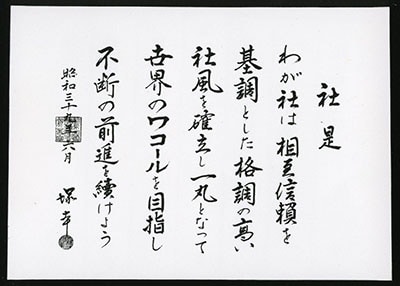 社是
わが社は相互信頼を
基調とした格調の高い
社風を確立し一丸となって
世界のワコールを目指し
不断の前進を続けよう
昭和三十九年六月
塚幸